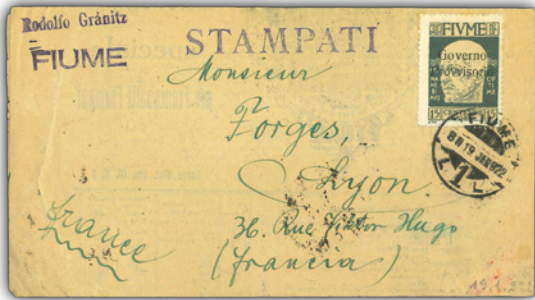 Rodolfo Gránitz
FIUME
STAMPATI
FIVME
Governo
Provvisorio
15
15
Monsieur
Forges,
Lyon.
36. Rue Viktor Hugo
(Francia)
France
FIUME
19 JAN 922
1
L L
19.1.922